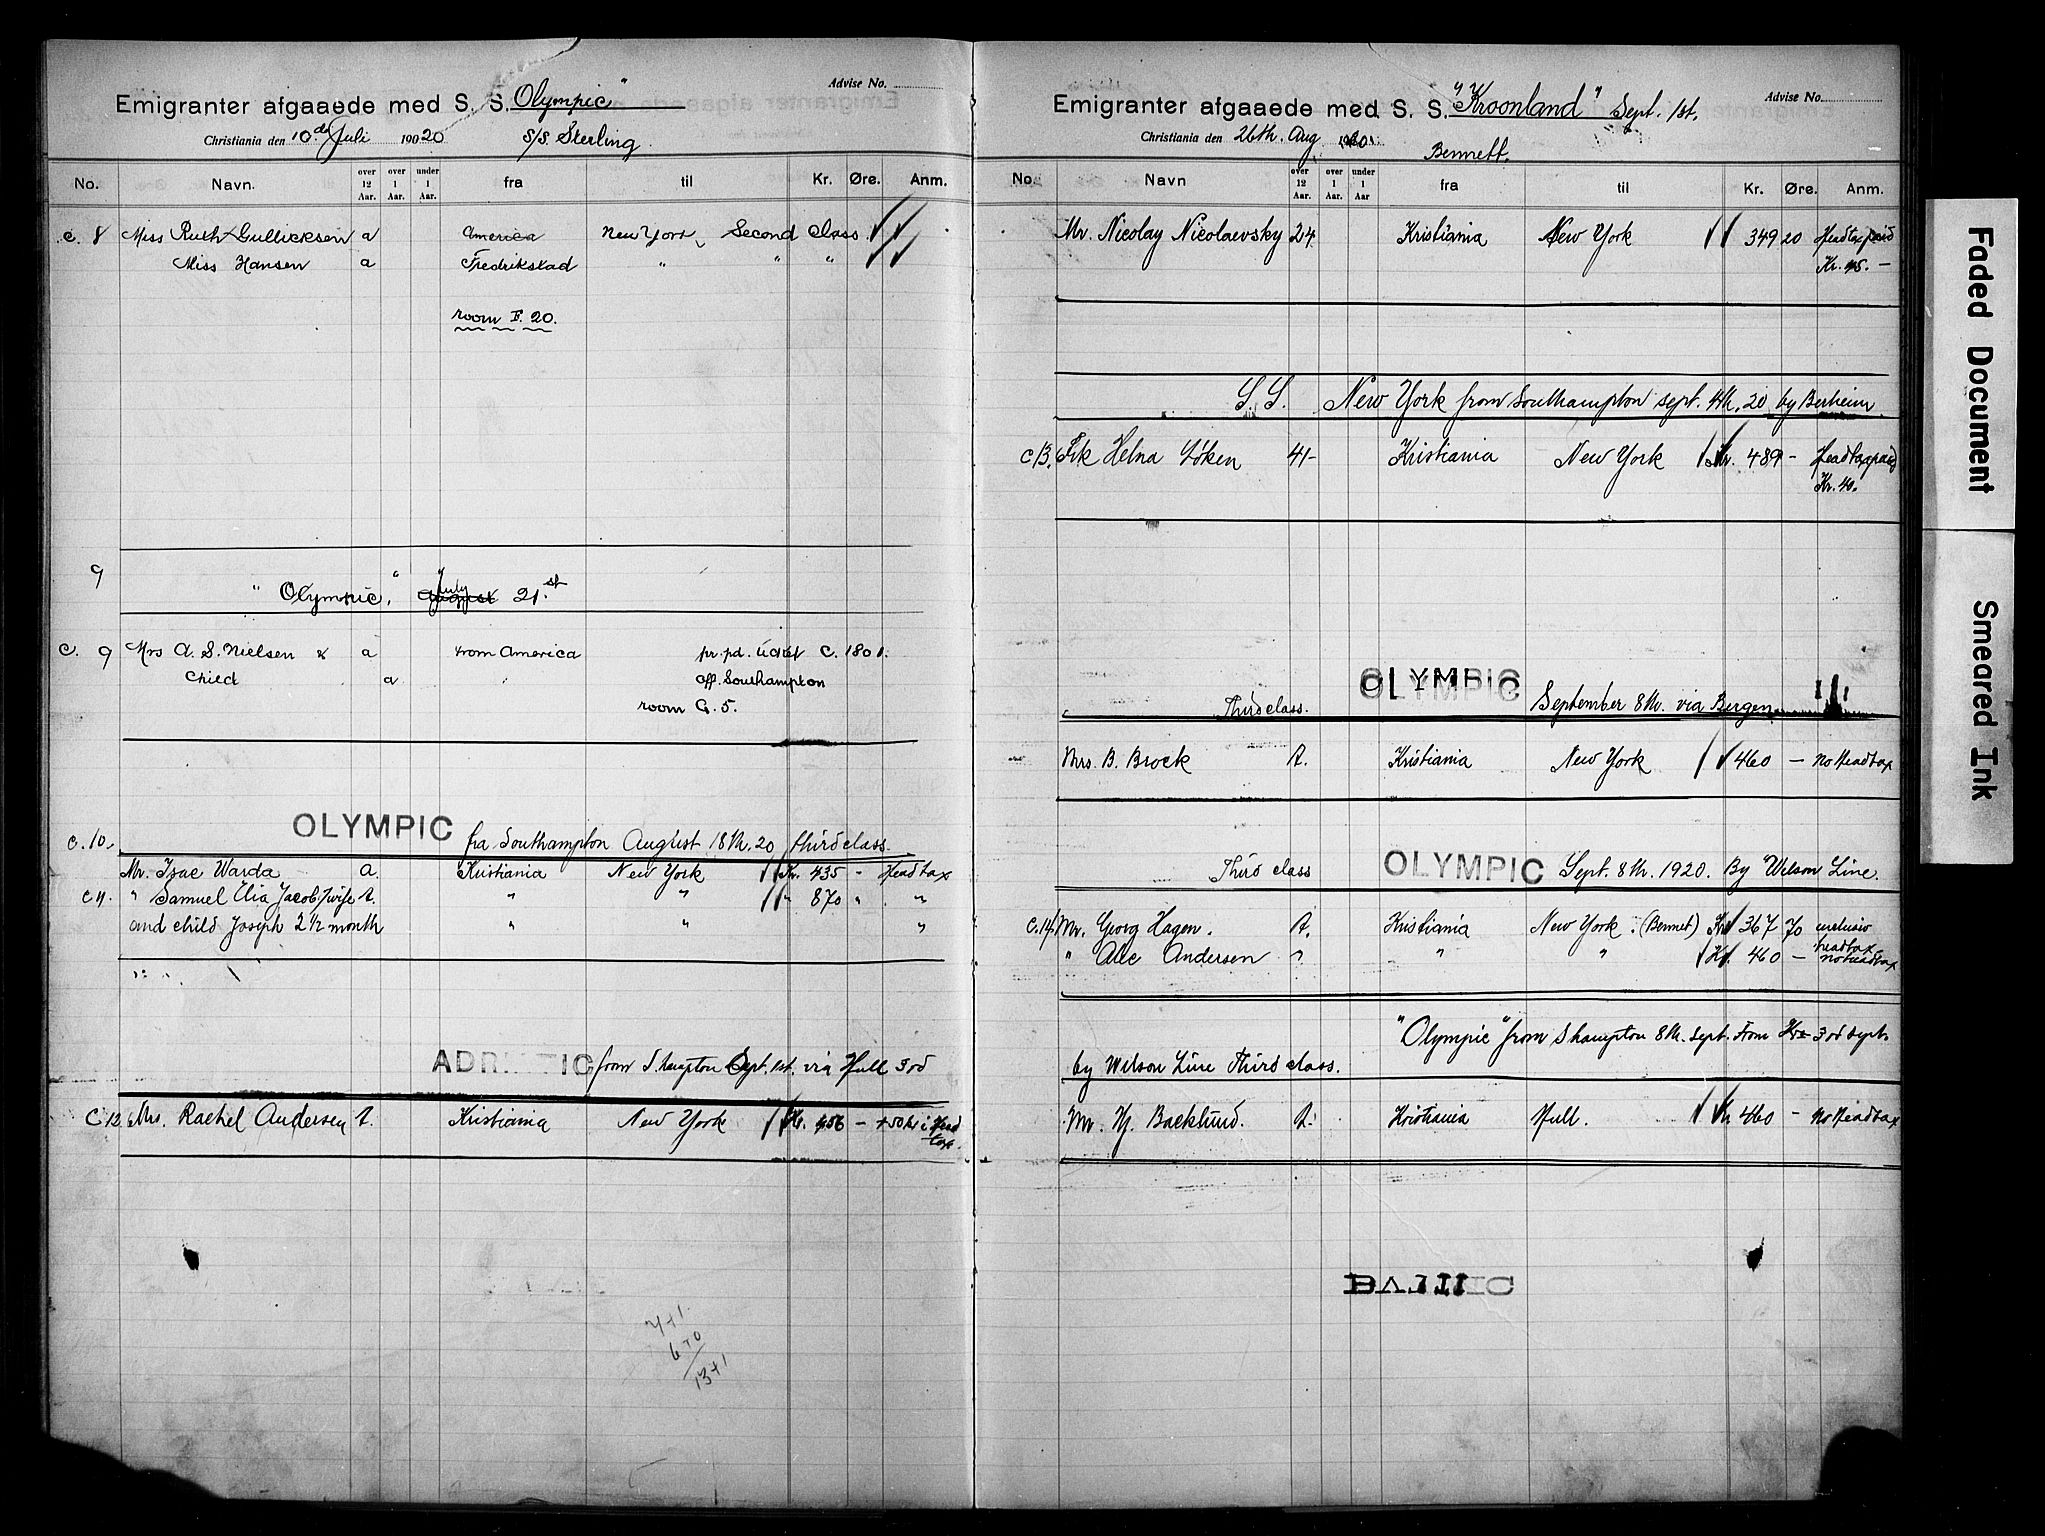 Advise No.
Emigranter afgaaede med S. S. "Olympic"
Christiania den 10de Juli 19020 S/S. Sterling
No. Navn. over 12 Aar. over 1 Aar. under 1 Aar. fra til Kr. Øre. Anm.
c. 8 Miss Ruth Gullicksen a America New York, Second Class.
Miss Hansen a Fredrikstad " " "
room F. 20.
9
"Olympic", July 21.st
c. 9 Mrs A. S. Nielsen & a from America pr. pd. C. 1801.
Child a " Southampton
room G. 5.
c. 10. OLYMPIC fra Southampton August 18th. 20 third class.
Mr. Isac Warda a. Kristiania New York Kr. 435 - Headtax
c 11. " Samuel Elia Jacob, wife A. " " " 870 " "
and child Joseph 2 1/2 month " " "
ADRIATIC from S.hampton Sept. 1st. via Hull 3rd
C 12. Mrs. Rachel Andersen A. Kristiania New York Kr. 456 - + 50 kr i Head
tax.
741
670
1341
Advise No.
Emigranter afgaaede med S. S. "Kroonland" Sept. 1st.
Christiania den 26th. Aug 1920 Bennett.
No. Navn over 12 Aar. over 1 Aar. under 1 Aar fra til Kr. Øre. Anm.
Mr. Nicolay Nicolaevsky 24 Kristiania New York 349 20 Headtax paid
Kr. 45. -
S. S. New York from Southampton sept. 4th. 20 by Berheim.
c 13. Frk Helna Løken 41- Kristiania New York Kr. 489 - Headtax paid
Kr. 40.
OLYMPIC
Third class. September 8th. via Bergen
Mrs. B. Brock A. Kristiania New York 460 - no Headtax
Third class OLYMPIC Sept. 8th. 1920. By Wilson Line.
c. 14. Mr. Georg Hagen. A. Kristiania New York. (Bennet) Kr 367 70 headtax
" Andersen " " " Kr. 460 - no headtax
"Olympic" from S.hampton 8th. sept. From Kra 3rd sept.
by Wilson Line Third class.
Mr. Hj. Backlund. A. Kristiania Hull. Kr 460 - No Headtax
BALTIC
Faded Document
Smeared Ink